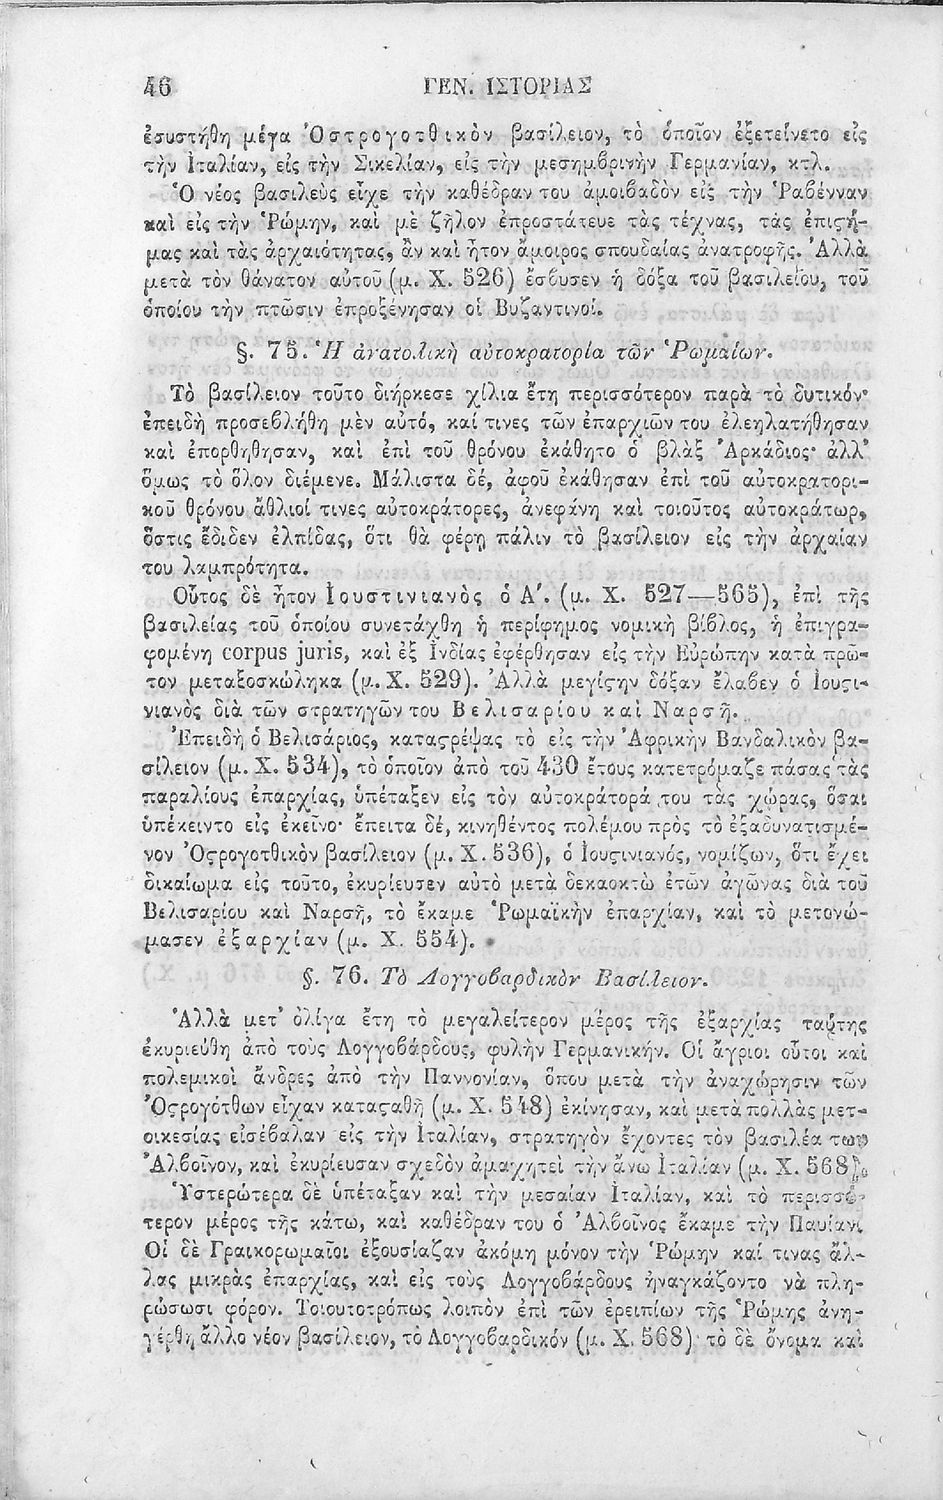 46 ΓΕΝ. ΙΣΤΟΡΙΑΣ
ἐσυστήθη μέγα Ὀστρογοτθικὸν βασίλειον, τὸ ὁποῖον ἐξετείνετο εἰς
τὴν Ἰταλίαν, εἰς τὴν Σικελίαν, εἰς τὴν μεσημβρινὴν Γερμανίαν, κτλ.
Ὁ νέος βασιλεὺς εἶχε τὴν καθέδραν του ἀμοιβαδὸν εἰς τὴν Ῥαβένναν
καὶ εἰς τὴν Ῥώμην, καὶ μὲ ζῆλον ἐπροστάτευε τὰς τέχνας, τὰς ἐπιςή-
μας καὶ τὰς ἀρχαιότητας, ἂν καὶ ἦτον ἄμοιρος σπουδαίας ἀνατροφῆς. Ἀλλὰ
μετὰ τὸν θάνατον αὐτοῦ (μ. Χ. 526) ἔσβυσεν ἡ δόξα τοῦ βασιλείου, τοῦ
ὁποίου τὴν πτῶσιν ἐπροξένησαν οἱ Βυζαντινοί.
§. 75. Ἡ ἀνατολικὴ αὐτοκρατορία τῶν Ῥωμαίων.
Τὸ βασίλειον τοῦτο διήρκεσε χίλια ἔτη περισσότερον παρὰ τὸ δυτικόν·
ἐπειδὴ προσεβλήθη μὲν αὐτό, καί τινες τῶν ἐπαρχιῶν του ἐλεηλατήθησαν
καὶ ἐπορθηθησαν, καὶ ἐπὶ τοῦ θρόνου ἐκάθητο ὁ βλὰξ Ἀρκάδιος· ἀλλ'
ὅμως τὸ ὅλον διέμενε. Μάλιστα δέ, ἀφοῦ ἐκάθησαν ἐπὶ τοῦ αὐτοκρατορι-
κοῦ θρόνου ἄθλιοί τινες αὐτοκράτορες, ἀνεφάνη καὶ τοιοῦτος αὐτοκράτωρ,
ὅστις ἔδιδεν ἐλπίδας, ὅτι θὰ φέρῃ πάλιν τὸ βασίλειον εἰς τὴν ἀρχαίαν
του λαμπρότητα.
Οὗτος δὲ ἦτον Ἰουστινιανὸς ὁ Α'. (μ. Χ. 527—565), ἐπὶ τῆς
βασιλείας τοῦ ὁποίου συνετάχθη ἡ περίφημος νομικὴ βίβλος, ἡ ἐπιγρα-
φομένη corpus juris, καὶ ἐξ Ἰνδίας ἐφέρθησαν εἰς τὴν Εὐρώπην κατὰ πρῶ-
τον μεταξοσκώληκα (μ. Χ. 529). Ἀλλὰ μεγίςην δόξαν ἔλαβεν ὁ Ἰουςι-
νιανὸς διὰ τῶν στρατηγῶν του Βελισαρίου καὶ Ναρσῆ.
Ἐπειδὴ ὁ Βελισάριος, καταςρέψας τὸ εἰς τὴν Ἀφρικὴν Βανδαλικὸν βα-
σίλειον (μ. Χ. 534), τὸ ὁποῖον ἀπὸ τοῦ 430 ἔτους κατετρόμαζε πάσας τὰς
παραλίους ἐπαρχίας, ὑπέταξεν εἰς τὸν αὐτοκράτορά του τὰς χώρας, ὅσαι
ὑπέκειντο εἰς ἐκεῖνο· ἔπειτα δέ, κινηθέντος πολέμου πρὸς τὸ ἐξαδυνατισμέ-
νον Ὀςρογοτθικὸν βασίλειον (μ. Χ. 536), ὁ Ἰουςινιανός, νομίζων, ὅτι ἔχει
δικαίωμα εἰς τοῦτο, ἐκυρίευσεν αὐτὸ μετὰ δεκαοκτὼ ἐτῶν ἀγῶνας διὰ τοῦ
Βελισαρίου καὶ Ναρσῆ, τὸ ἔκαμε Ῥωμαϊκὴν ἐπαρχίαν, καὶ τὸ μετονώ-
μασεν ἐξαρχίαν (μ. Χ. 554).
§. 76. Τὸ Λογγοβαρδικὸν Βασίλειον.
Ἀλλὰ μετ' ὀλίγα ἔτη τὸ μεγαλείτερον μέρος τῆς ἐξαρχίας ταύτης
ἐκυριεύθη ἀπὸ τοὺς Λογγοβάρδους, φυλὴν Γερμανικήν. Οἱ ἄγριοι οὗτοι καὶ
πολεμικοὶ ἄνδρες ἀπὸ τὴν Παννονίαν, ὅπου μετὰ τὴν ἀναχώρησιν τῶν
Ὀςρογότθων εἶχαν καταςαθῆ (μ. Χ. 548) ἐκίνησαν, καὶ μετὰ πολλὰς μετ-
οικεσίας εἰσέβαλαν εἰς τὴν Ἰταλίαν, στρατηγὸν ἔχοντες τὸν βασιλέα των
Ἀλβοῖνον, καὶ ἐκυρίευσαν σχεδὸν ἀμαχητεὶ τὴν ἄνω Ἰταλίαν (μ. Χ. 568).
Ὑστερώτερα δὲ ὑπέταξαν καὶ τὴν μεσαίαν Ἰταλίαν, καὶ τὸ περισσό-
τερον μέρος τῆς κάτω, καὶ καθέδραν του ὁ Ἀλβοῖνος ἔκαμε τὴν Παυίαν.
Οἱ δὲ Γραικορωμαῖοι ἐξουσίαζαν ἀκόμη μόνον τὴν Ῥώμην καί τινας ἄλ-
λας μικρὰς ἐπαρχίας, καὶ εἰς τοὺς Λογγοβάρδους ἠναγκάζοντο νὰ πλη-
ρώσωσι φόρον. Τοιουτοτρόπως λοιπὸν ἐπὶ τῶν ἐρειπίων τῆς Ῥώμης ἀνη-
γέρθη ἄλλο νέον βασίλειον, τὸ Λογγοβαρδικόν (μ. Χ. 568) τὸ δὲ ὄνομα καὶ